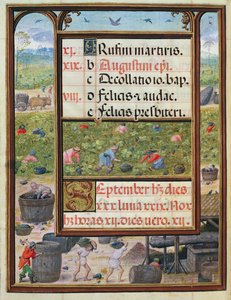 A Rufini martiris.
xi. b Augustini ep̄i.
xix. c Decollatio io. bap.
viii. d Felicis ⁊ audac.
e Felicis presbiteri.
September hȝ dies
xxx luna xxix. Nox
hȝ horas xii. dies vero. xii.